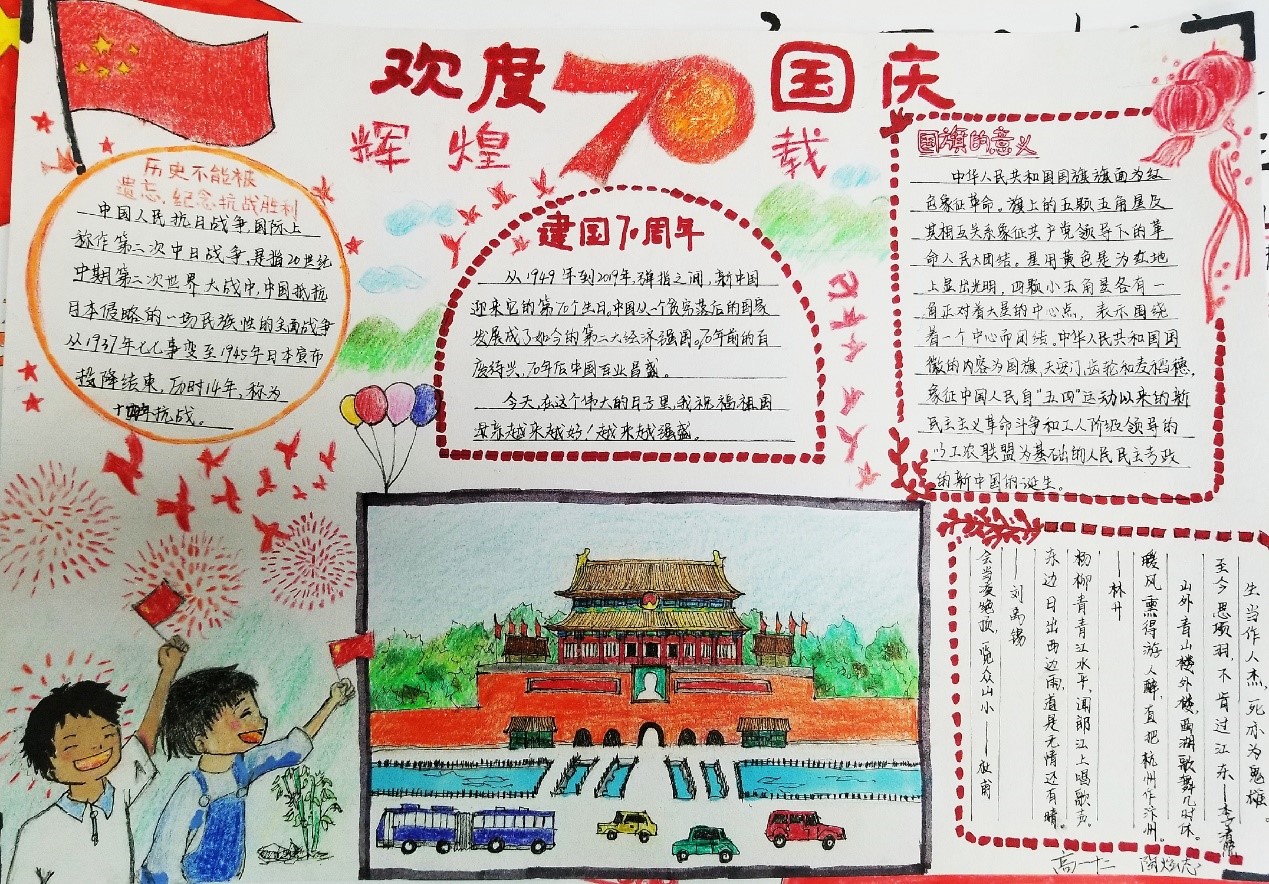 欢度70国庆
辉煌 载
历史不能被
遗忘、纪念抗战胜利
中国人民抗日战争,国际上
称作第二次中日战争,是指20世纪
中期第二次世界大战中,中国抵抗
日本侵略的一场民族性的全面战争
从1937年七七事变至1945年日本宣布
投降结束,历时14年,称为
十四年抗战。
建国70周年
从1949年到2019年,弹指之间,新中国
迎来它的第70个生日。中国从一个贫穷落后的国家
发展成了如今的第二大经济强国。70年前的百
废待兴,70年后中国百业昌盛。
今天,在这个伟大的日子里,我祝福祖国
母亲越来越好!越来越强盛。
国旗的意义
中华人民共和国国旗旗面为红
色象征革命。旗上的五颗五角星及
其相互关系象征共产党领导下的革
命人民大团结。星用黄色是为红地
上显出光明,四颗小五角星各有一
角正对着大星的中心点,表示围绕
着一个中心而团结。中华人民共和国国
徽的内容为国旗、天安门、齿轮和麦稻穗,
象征中国人民自"五四"运动以来的新
民主主义革命斗争和工人阶级领导的
以工农联盟为基础的人民民主专政
的新中国的诞生。
生当作人杰,死亦为鬼雄。
至今思项羽,不肯过江东——李清照
山外青山楼外楼,西湖歌舞几时休。
暖风熏得游人醉,直把杭州作汴州。
——林升
杨柳青青江水平,闻郎江上唱歌声。
东边日出西边雨,道是无情还有晴。
——刘禹锡
会当凌绝顶,一览众山小——杜甫
高一十二